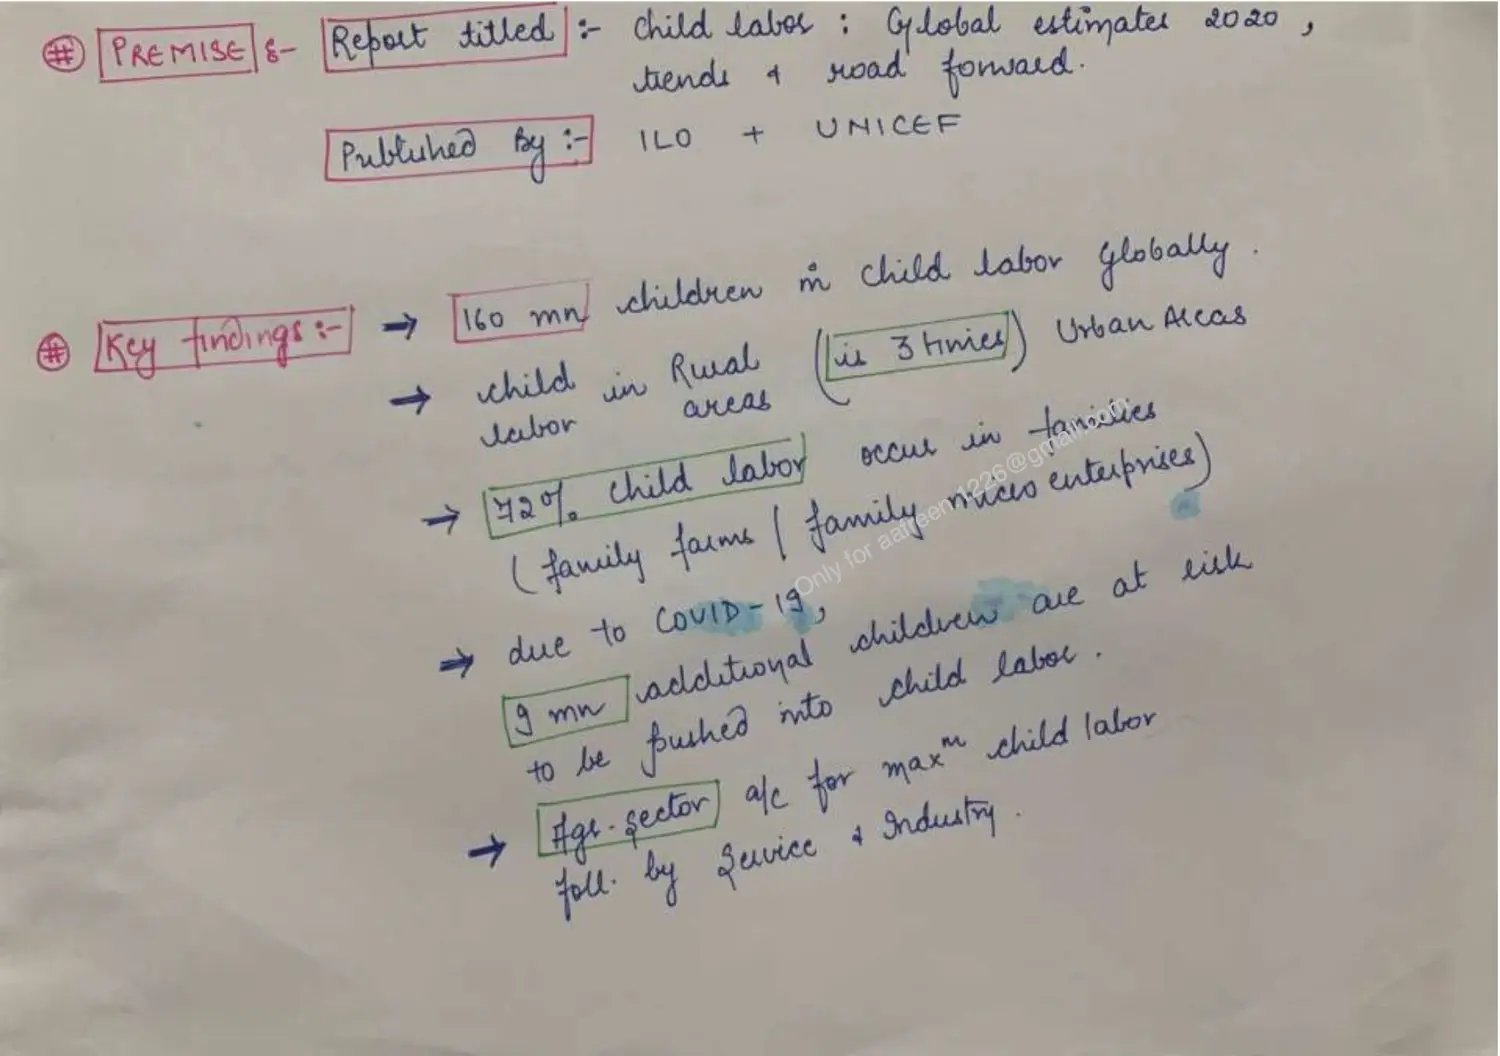 # PREMISE :- Report titled :- Child labor : Global estimates 2020 ,
trends & road forward.
Published By :- ILO + UNICEF
# Key findings :- → 160 mn children in child labor Globally .
→ child labor in Rural areas (is 3 times) Urban Areas
→ 72% child labor occur in families
( family farms / family micro enterprises)
→ due to COVID-19,
9 mn additional children are at risk
to be pushed into child labor .
→ Agr. Sector a/c for maxm child labor
foll. by Service & Industry .
Only for aafreen1226@gmail.com